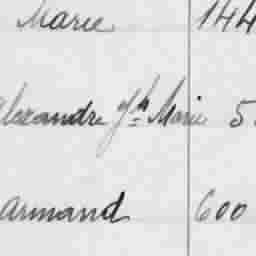 Marie 144
Alexandre Jh Marie 5
Armand 600